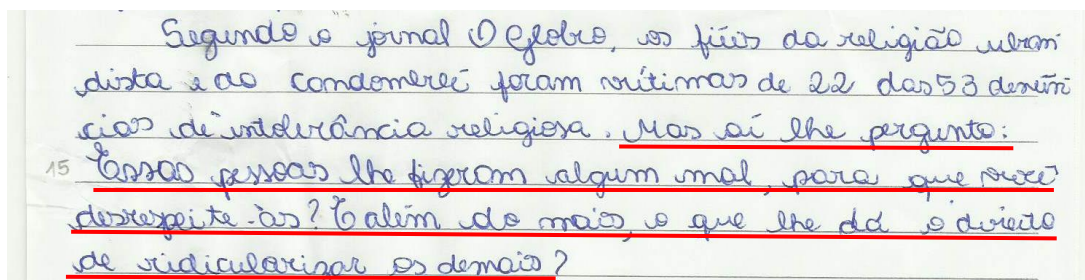 Segundo o jornal O Globro, os fiéis da religião ubran
dista e do condomereé foram vítimas de 22 das 53 denún
cias de intolerância religiosa. Mas aí lhe pergunto:
15 Essas pessoas lhe fizeram algum mal, para que você
desrespeite-às? E além do mais, o que lhe dá o direito
de ridicularizar os demais?